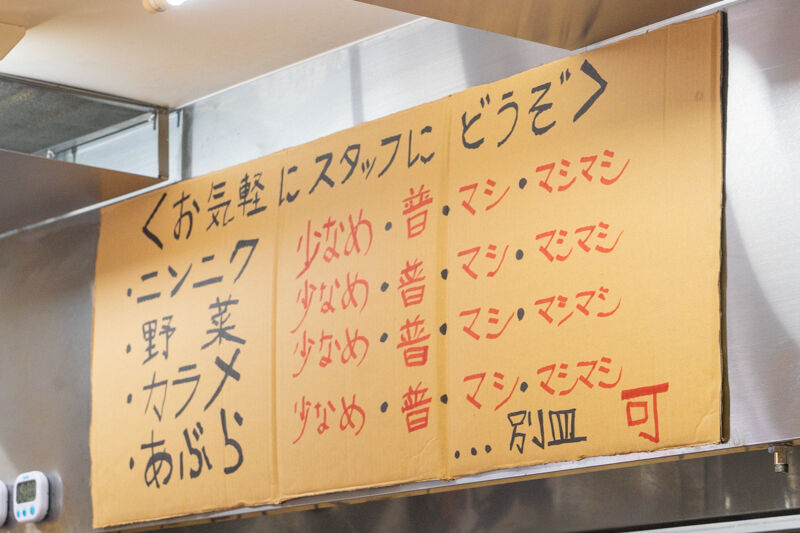 〈お気軽にスタッフに どうぞ〉
・ニンニク 少なめ・普・マシ・マシマシ
・野菜 少なめ・普・マシ・マシマシ
・カラメ 少なめ・普・マシ・マシマシ
・あぶら 少なめ・普・マシ・マシマシ
…別皿 可